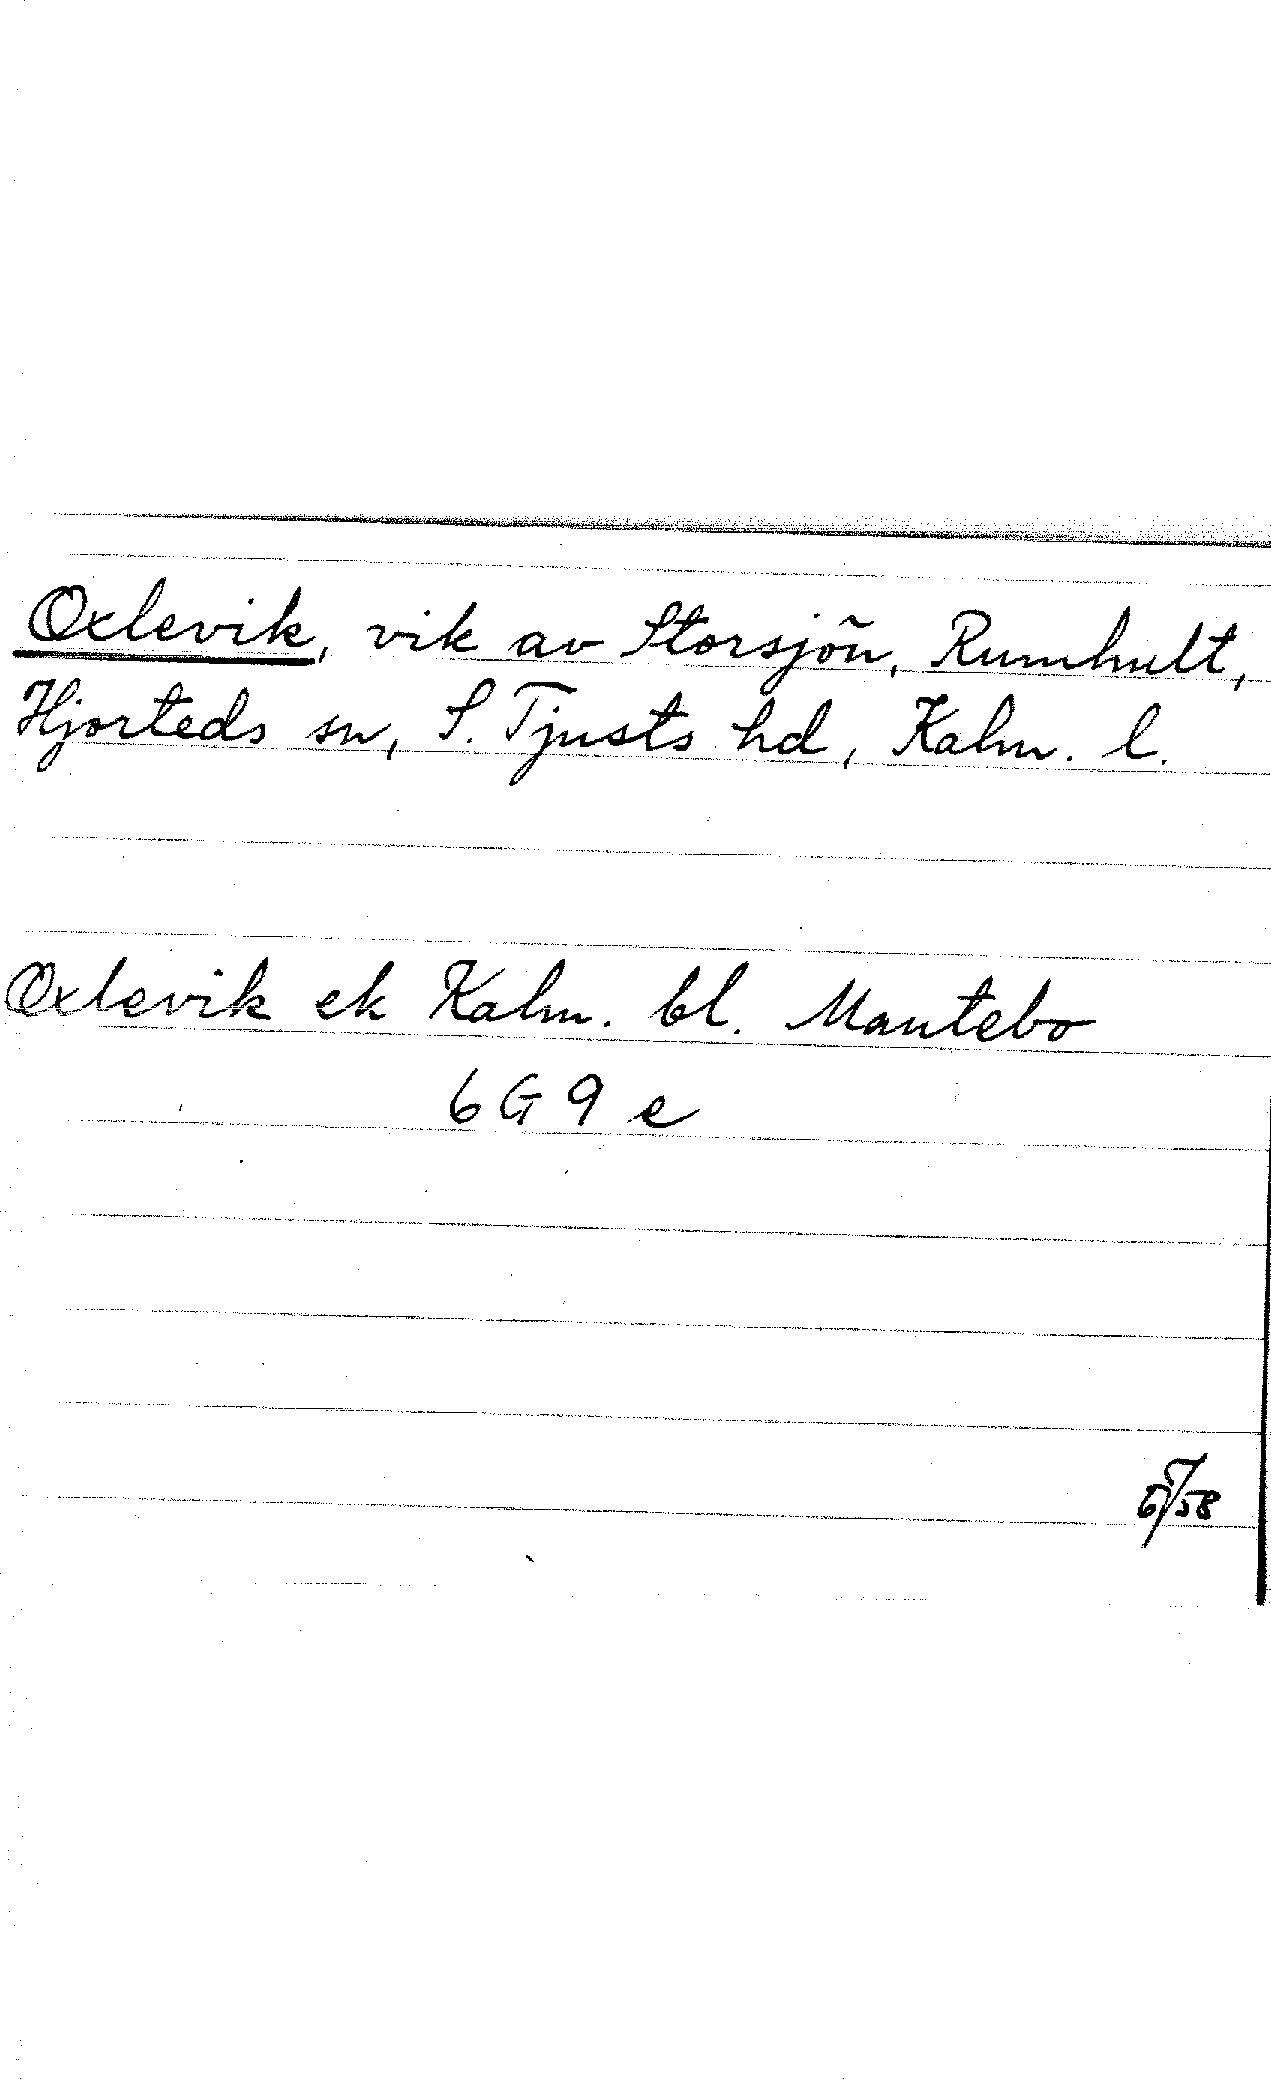 Oxlevik, vik av Storsjön, Rumhult,
Hjorteds sn, S. Tjusts hd, Kalm. l.
Oxlevik ek Kalm. bl. Mantebo
6 G 9 e